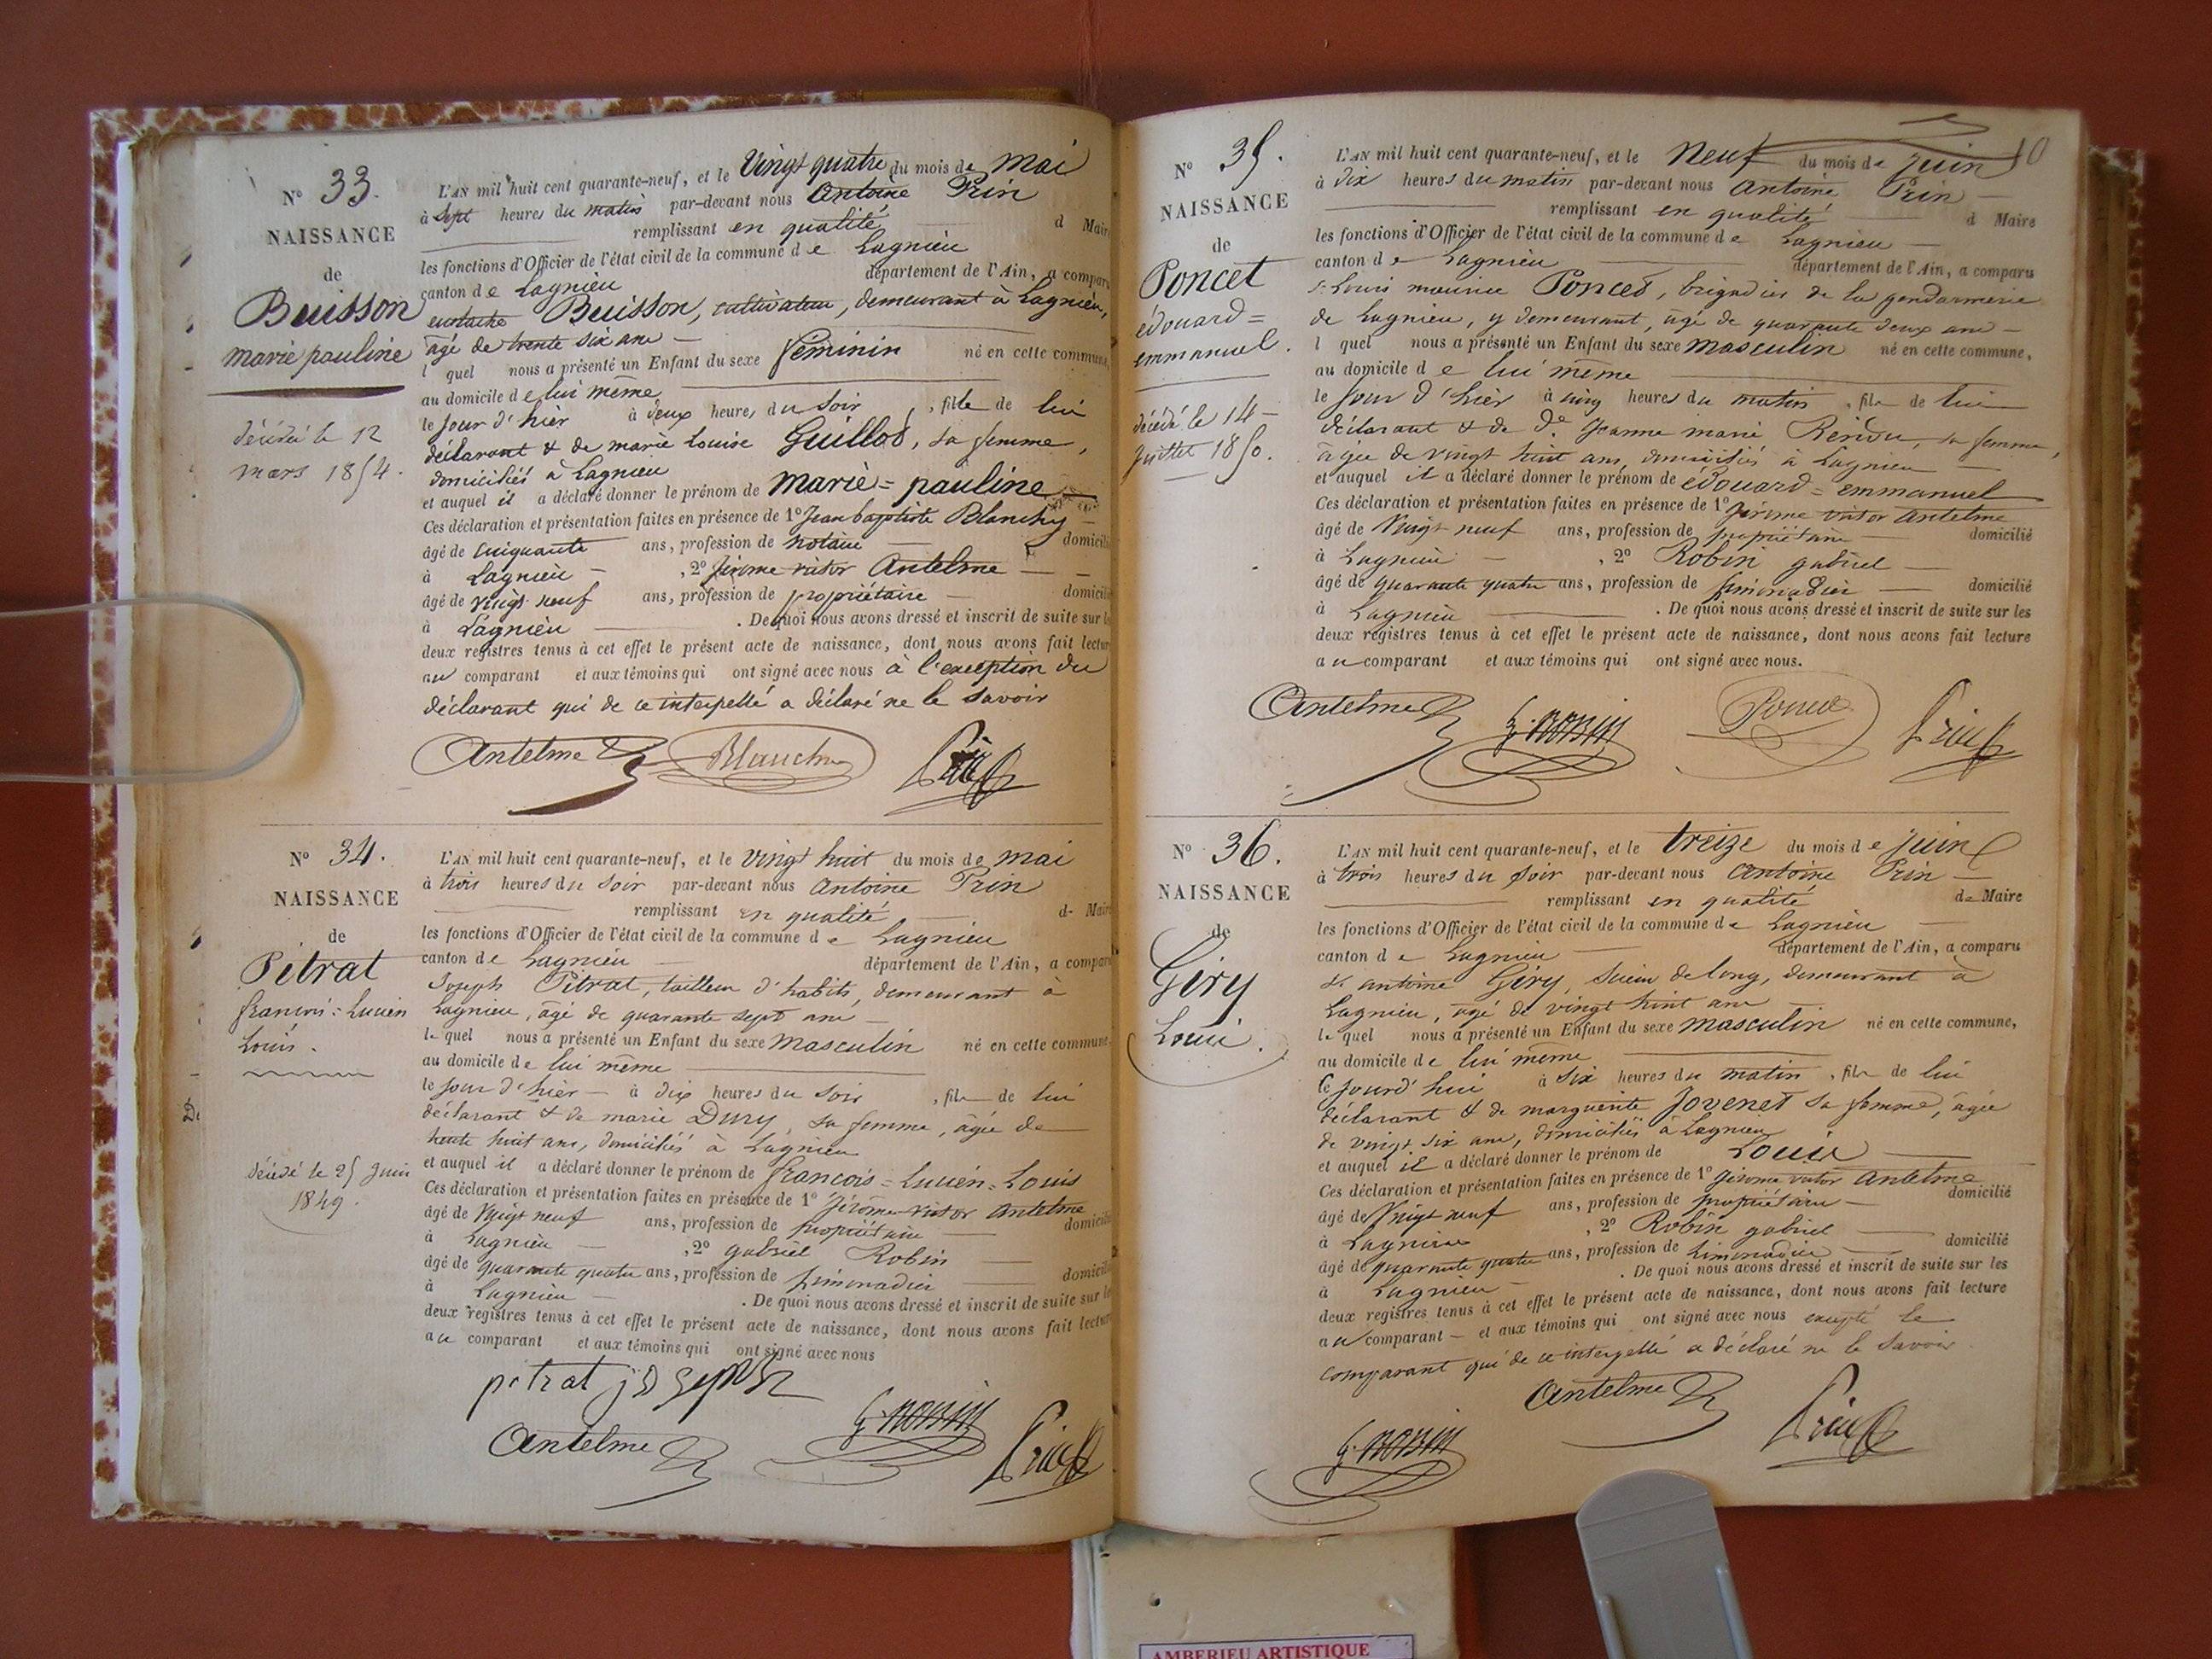 N° 33.
NAISSANCE
de
Buisson
marie pauline
décédée le 12
mars 1854.
L'AN mil huit cent quarante-neuf, et le Vingt quatre du mois de mai
à sept heures du matin par-devant nous Antoine Prin
remplissant en qualité d Maire
les fonctions d'Officier de l'état civil de la commune de Lagnieu
canton de Lagnieu département de l'Ain, a comparu
eustache Buisson, cultivateur, demeurant à Lagnieu,
âgé de trente six ans
l quel nous a présenté un Enfant du sexe féminin né en cette commune,
au domicile de lui même
le jour d'hier à deux heures du soir, fille de lui
déclarant & de marie Louise Guillot, sa femme,
domiciliés à Lagnieu
et auquel il a déclaré donner le prénom de marie = pauline
Ces déclaration et présentation faites en présence de 1° Jean baptiste Blanchy
âgé de cinquante ans, profession de notaire domicilié
à Lagnieu, 2° Jérome victor Antelme
âgé de vingt neuf ans, profession de propriétaire domicilié
à Lagnieu. De quoi nous avons dressé et inscrit de suite sur les
deux registres tenus à cet effet le présent acte de naissance, dont nous avons fait lecture
au comparant et aux témoins qui ont signé avec nous à l'exception du
déclarant qui de ce interpellé a déclaré ne le savoir
Antelme Blanchy Prin
N° 34.
NAISSANCE
de
Pétrat
françois = Lucien
Louis.
décédé le 25 Juin
1849.
L'AN mil huit cent quarante-neuf, et le vingt huit du mois de mai
à trois heures du soir par-devant nous Antoine Prin
remplissant en qualité d Maire
les fonctions d'Officier de l'état civil de la commune de Lagnieu
canton de Lagnieu département de l'Ain, a comparu
Joseph Pétrat, tailleur d'habits, demeurant à
Lagnieu, âgé de quarante sept ans
le quel nous a présenté un Enfant du sexe Masculin né en cette commune,
au domicile de lui même
le jour d'hier à dix heures du soir, fils de lui
déclarant & de marie Dury, sa femme, âgée de
trente huit ans, domiciliés à Lagnieu
et auquel il a déclaré donner le prénom de françois = Lucien = Louis
Ces déclaration et présentation faites en présence de 1° Jérôme victor Antelme
âgé de Vingt neuf ans, profession de propriétaire domicilié
à Lagnieu, 2° gabriel Robin
âgé de quarante quatre ans, profession de limonadier domicilié
à Lagnieu. De quoi nous avons dressé et inscrit de suite sur les
deux registres tenus à cet effet le présent acte de naissance, dont nous avons fait lecture
au comparant et aux témoins qui ont signé avec nous
pétrat joseph
Antelme G. ROBIN Prin
10
N° 35.
NAISSANCE
de
Poncet
édouard =
emmanuel.
décédé le 14
Juillet 1850.
L'AN mil huit cent quarante-neuf, et le Neuf du mois de Juin
à dix heures du matin par-devant nous Antoine Prin
remplissant en qualité d Maire
les fonctions d'Officier de l'état civil de la commune de Lagnieu
canton de Lagnieu département de l'Ain, a comparu
sr Louis maurice Poncet, brigadier de la gendarmerie
de Lagnieu, y demeurant, âgé de quarante deux ans
l quel nous a présenté un Enfant du sexe masculin né en cette commune,
au domicile de lui même
le jour d'hier à cinq heures du matin, fils de lui
déclarant & de de Jeanne marie Rendu, sa femme,
âgée de vingt huit ans, domiciliés à Lagnieu
et auquel il a déclaré donner le prénom de édouard = emmanuel
Ces déclaration et présentation faites en présence de 1° Jérome victor Antelme
âgé de Vingt neuf ans, profession de propriétaire domicilié
à Lagnieu, 2° Robin gabriel
âgé de quarante quatre ans, profession de limonadier domicilié
à Lagnieu. De quoi nous avons dressé et inscrit de suite sur les
deux registres tenus à cet effet le présent acte de naissance, dont nous avons fait lecture
au comparant et aux témoins qui ont signé avec nous.
Antelme G. ROBIN Poncet Prin
N° 36.
NAISSANCE
de
Géry
Louis.
L'AN mil huit cent quarante-neuf, et le treize du mois de Juin
à trois heures du soir par-devant nous Antoine Prin
remplissant en qualité de Maire
les fonctions d'Officier de l'état civil de la commune de Lagnieu
canton de Lagnieu département de l'Ain, a comparu
sr antoine Géry, scieur de long, demeurant à
Lagnieu, âgé de vingt huit ans
le quel nous a présenté un Enfant du sexe masculin né en cette commune,
au domicile de lui même
ce jourd'hui à six heures du matin, fils de lui
déclarant & de marguerite Jovenet sa femme, âgée
de vingt six ans, domiciliés à Lagnieu
et auquel il a déclaré donner le prénom de Louis
Ces déclaration et présentation faites en présence de 1° Jérome victor Antelme
âgé de Vingt neuf ans, profession de propriétaire domicilié
à Lagnieu, 2° Robin gabriel
âgé de quarante quatre ans, profession de limonadier domicilié
à Lagnieu. De quoi nous avons dressé et inscrit de suite sur les
deux registres tenus à cet effet le présent acte de naissance, dont nous avons fait lecture
au comparant et aux témoins qui ont signé avec nous excepté le
comparant qui de ce interpellé a déclaré ne le savoir.
Antelme
G. ROBIN Prin
AMBERIEU ARTISTIQUE